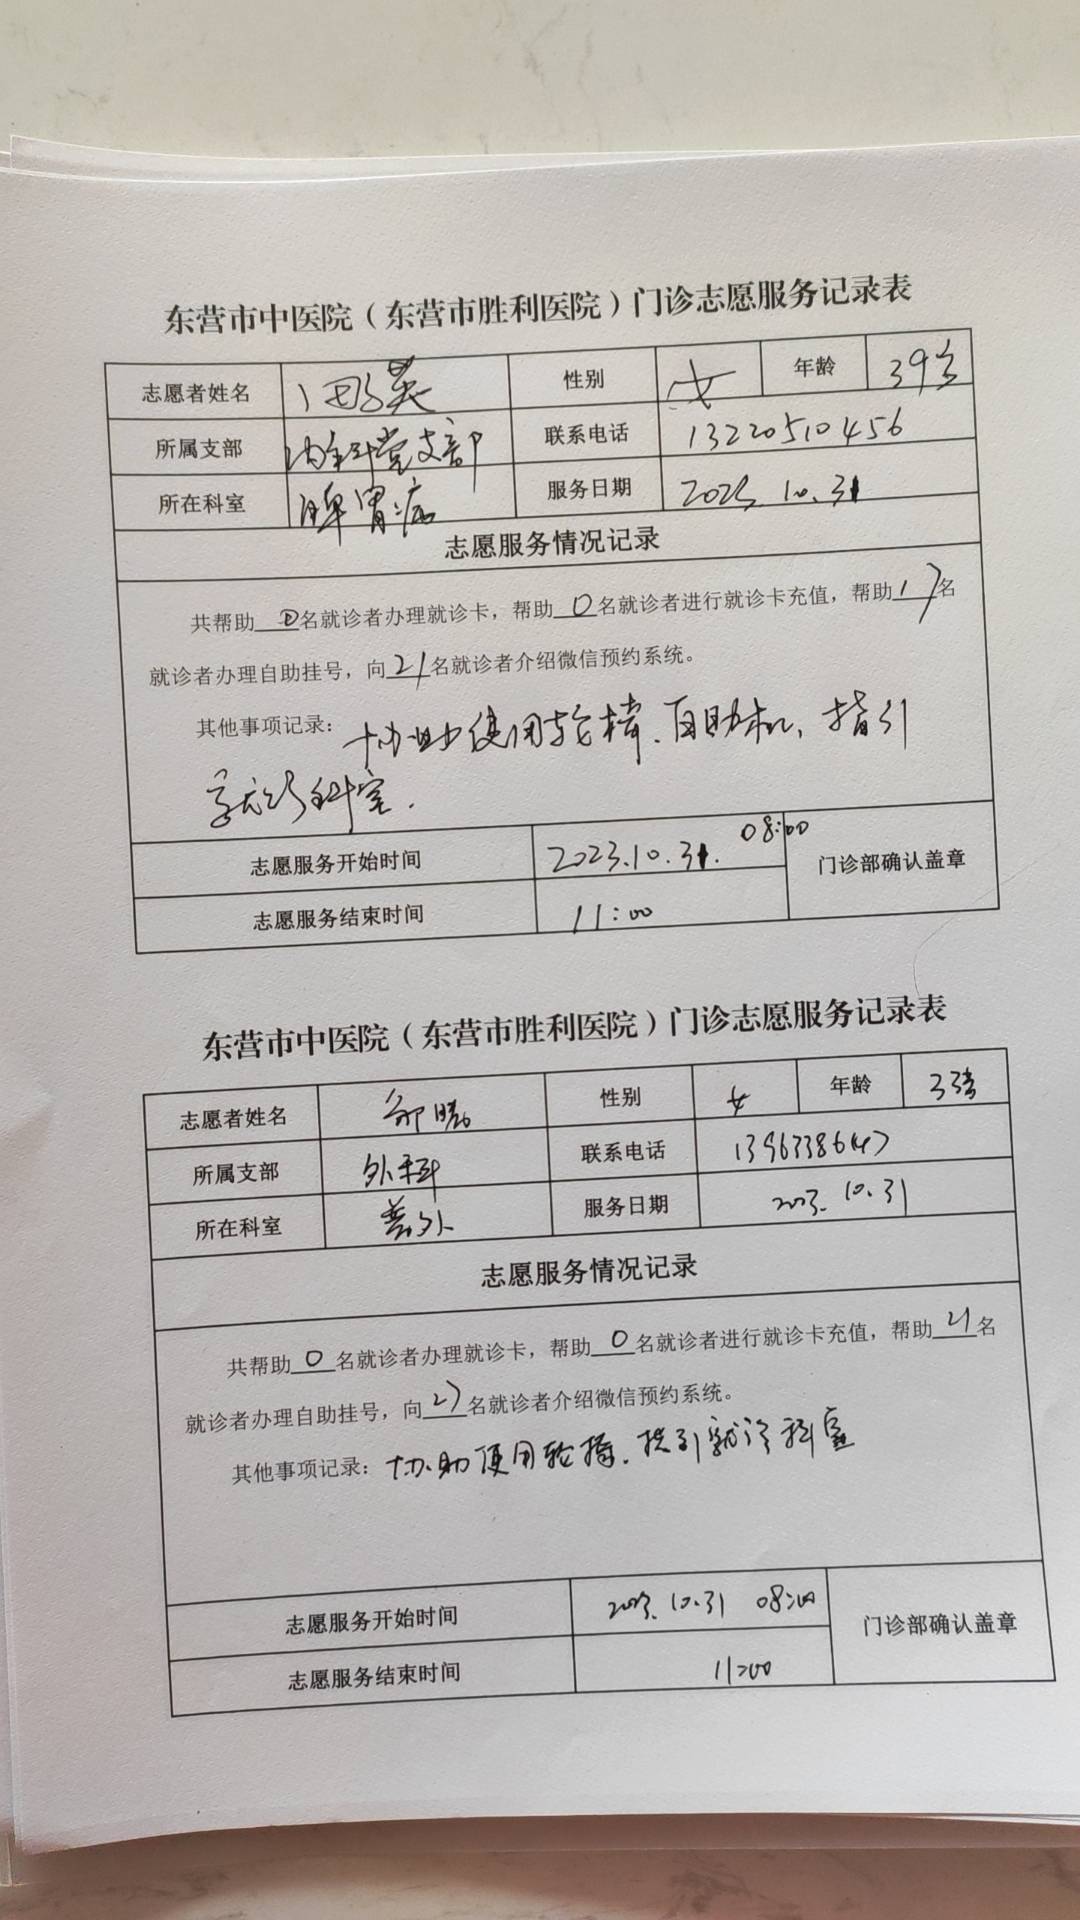 东营市中医院（东营市胜利医院）门诊志愿服务记录表
志愿者姓名 性别 女 年龄 39岁
所属支部 内科党支部 联系电话 13220510456
所在科室 脾胃病 服务日期 2023.10.31
志愿服务情况记录
共帮助0名就诊者办理就诊卡，帮助0名就诊者进行就诊卡充值，帮助17名
就诊者办理自助挂号，向21名就诊者介绍微信预约系统。
其他事项记录：协助使用轮椅、自助机，指引
就诊科室.
志愿服务开始时间 2023.10.31. 08:00 门诊部确认盖章
志愿服务结束时间 11:00
东营市中医院（东营市胜利医院）门诊志愿服务记录表
志愿者姓名 性别 女 年龄
所属支部 外科 联系电话
所在科室 普外 服务日期 2023.10.31
志愿服务情况记录
共帮助0名就诊者办理就诊卡，帮助0名就诊者进行就诊卡充值，帮助21名
就诊者办理自助挂号，向27名就诊者介绍微信预约系统。
其他事项记录：协助使用轮椅、指引就诊科室
志愿服务开始时间 2023.10.31 08:00 门诊部确认盖章
志愿服务结束时间 11:00